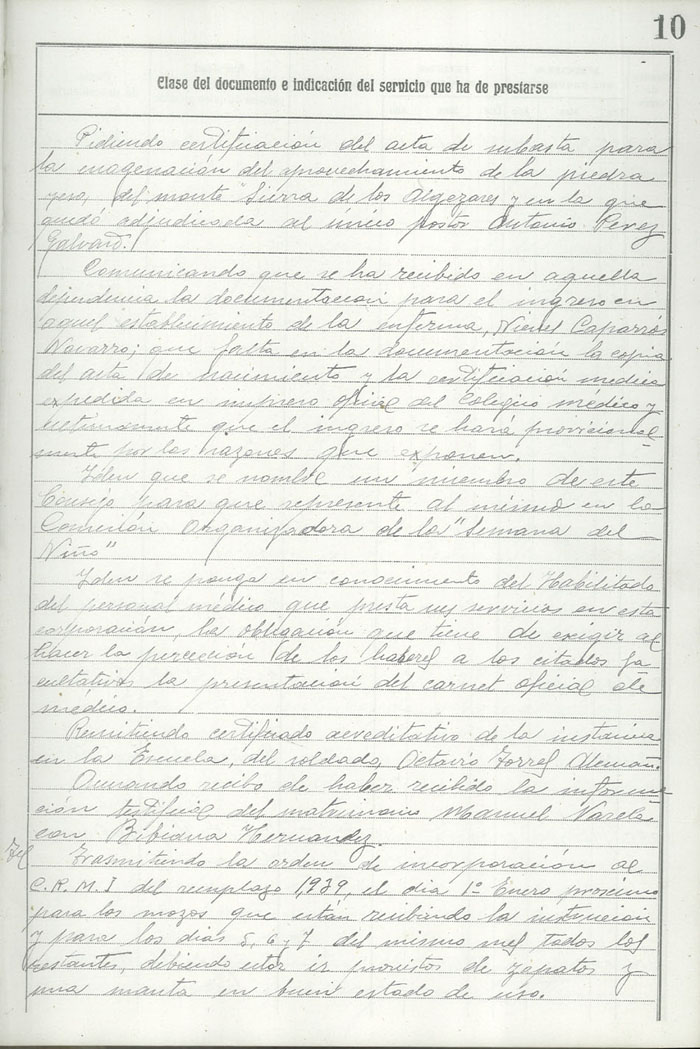 10
Clase del documento e indicación del servicio que ha de prestarse
Pidiendo certificación del acta de subasta para
la enagenación del aprovechamiento de la piedra
yeso, del monte "Sierra de los Algezares y en la que
quedó adjudicada al único postor Antonio Perez
Galvard.
Comunicando que se ha recibido en aquella
dependencia la documentación para el ingreso en
aquel establecimiento de la enferma, Caparrós
Navarro; que falta en la documentación la copia
del acta de nacimiento y la certificación medica
expedida en impreso oficial del Colegio médico y
ultimamente que el ingreso se hará provicional-
mente por las razones que exponen.
Iden que se nombre un miembro de este
Consejo para que represente al mismo en la
Comisión Organizadora de la "Semana del
Niño"
Iden se ponga en conocimiento del Habilitado
del personal médico que presta sus servicios en esta
corporación, la obligación que tiene de exigir al
hacer la percepción de los haberes a los citados fa
cultativos la presentación del carnet oficial de
médico.
Remitiendo certificado acreditativo de la instancia
en la Escuela, del soldado, Octavio Torres Aleman.
Acusando recibo de haber recibido la informa-
ción testifical del matrimonio Manuel Varela
con Bibiana Hernandez.
Tel Trasmitiendo la orden de incorporación al
C.R.M.I del reemplazo 1,939, el dia 1º Enero proximo
para los mozos que están recibiendo la instrucion
y para los dias 5, 6 y 7 del mismo mes todos los
restantes, debiendo estos ir provistos de zapatos y
una manta en buen estado de uso.